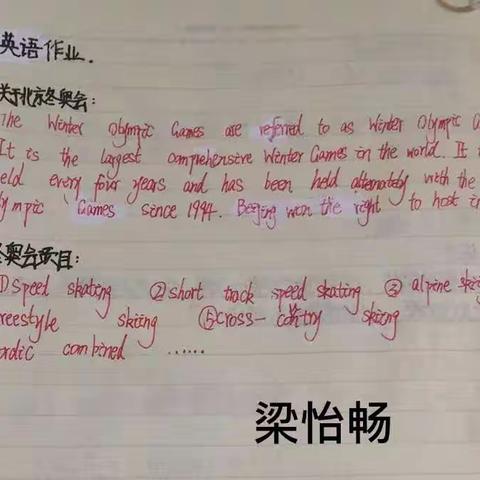 英语作业.
关于北京冬奥会:
The Winter Olympic Games are referred to as Winter Olympic
It is the largest comprehensive Winter Games in the world. It
eld every four years and has been held alternately with the
ympic Games since 1994. Beijing won the right to host in
冬奥会项目:
①Speed skating ②short track speed skating ③ alpine skiing
reestyle skiing ⑤cross-contry skiing
ordic combined ......
梁怡畅